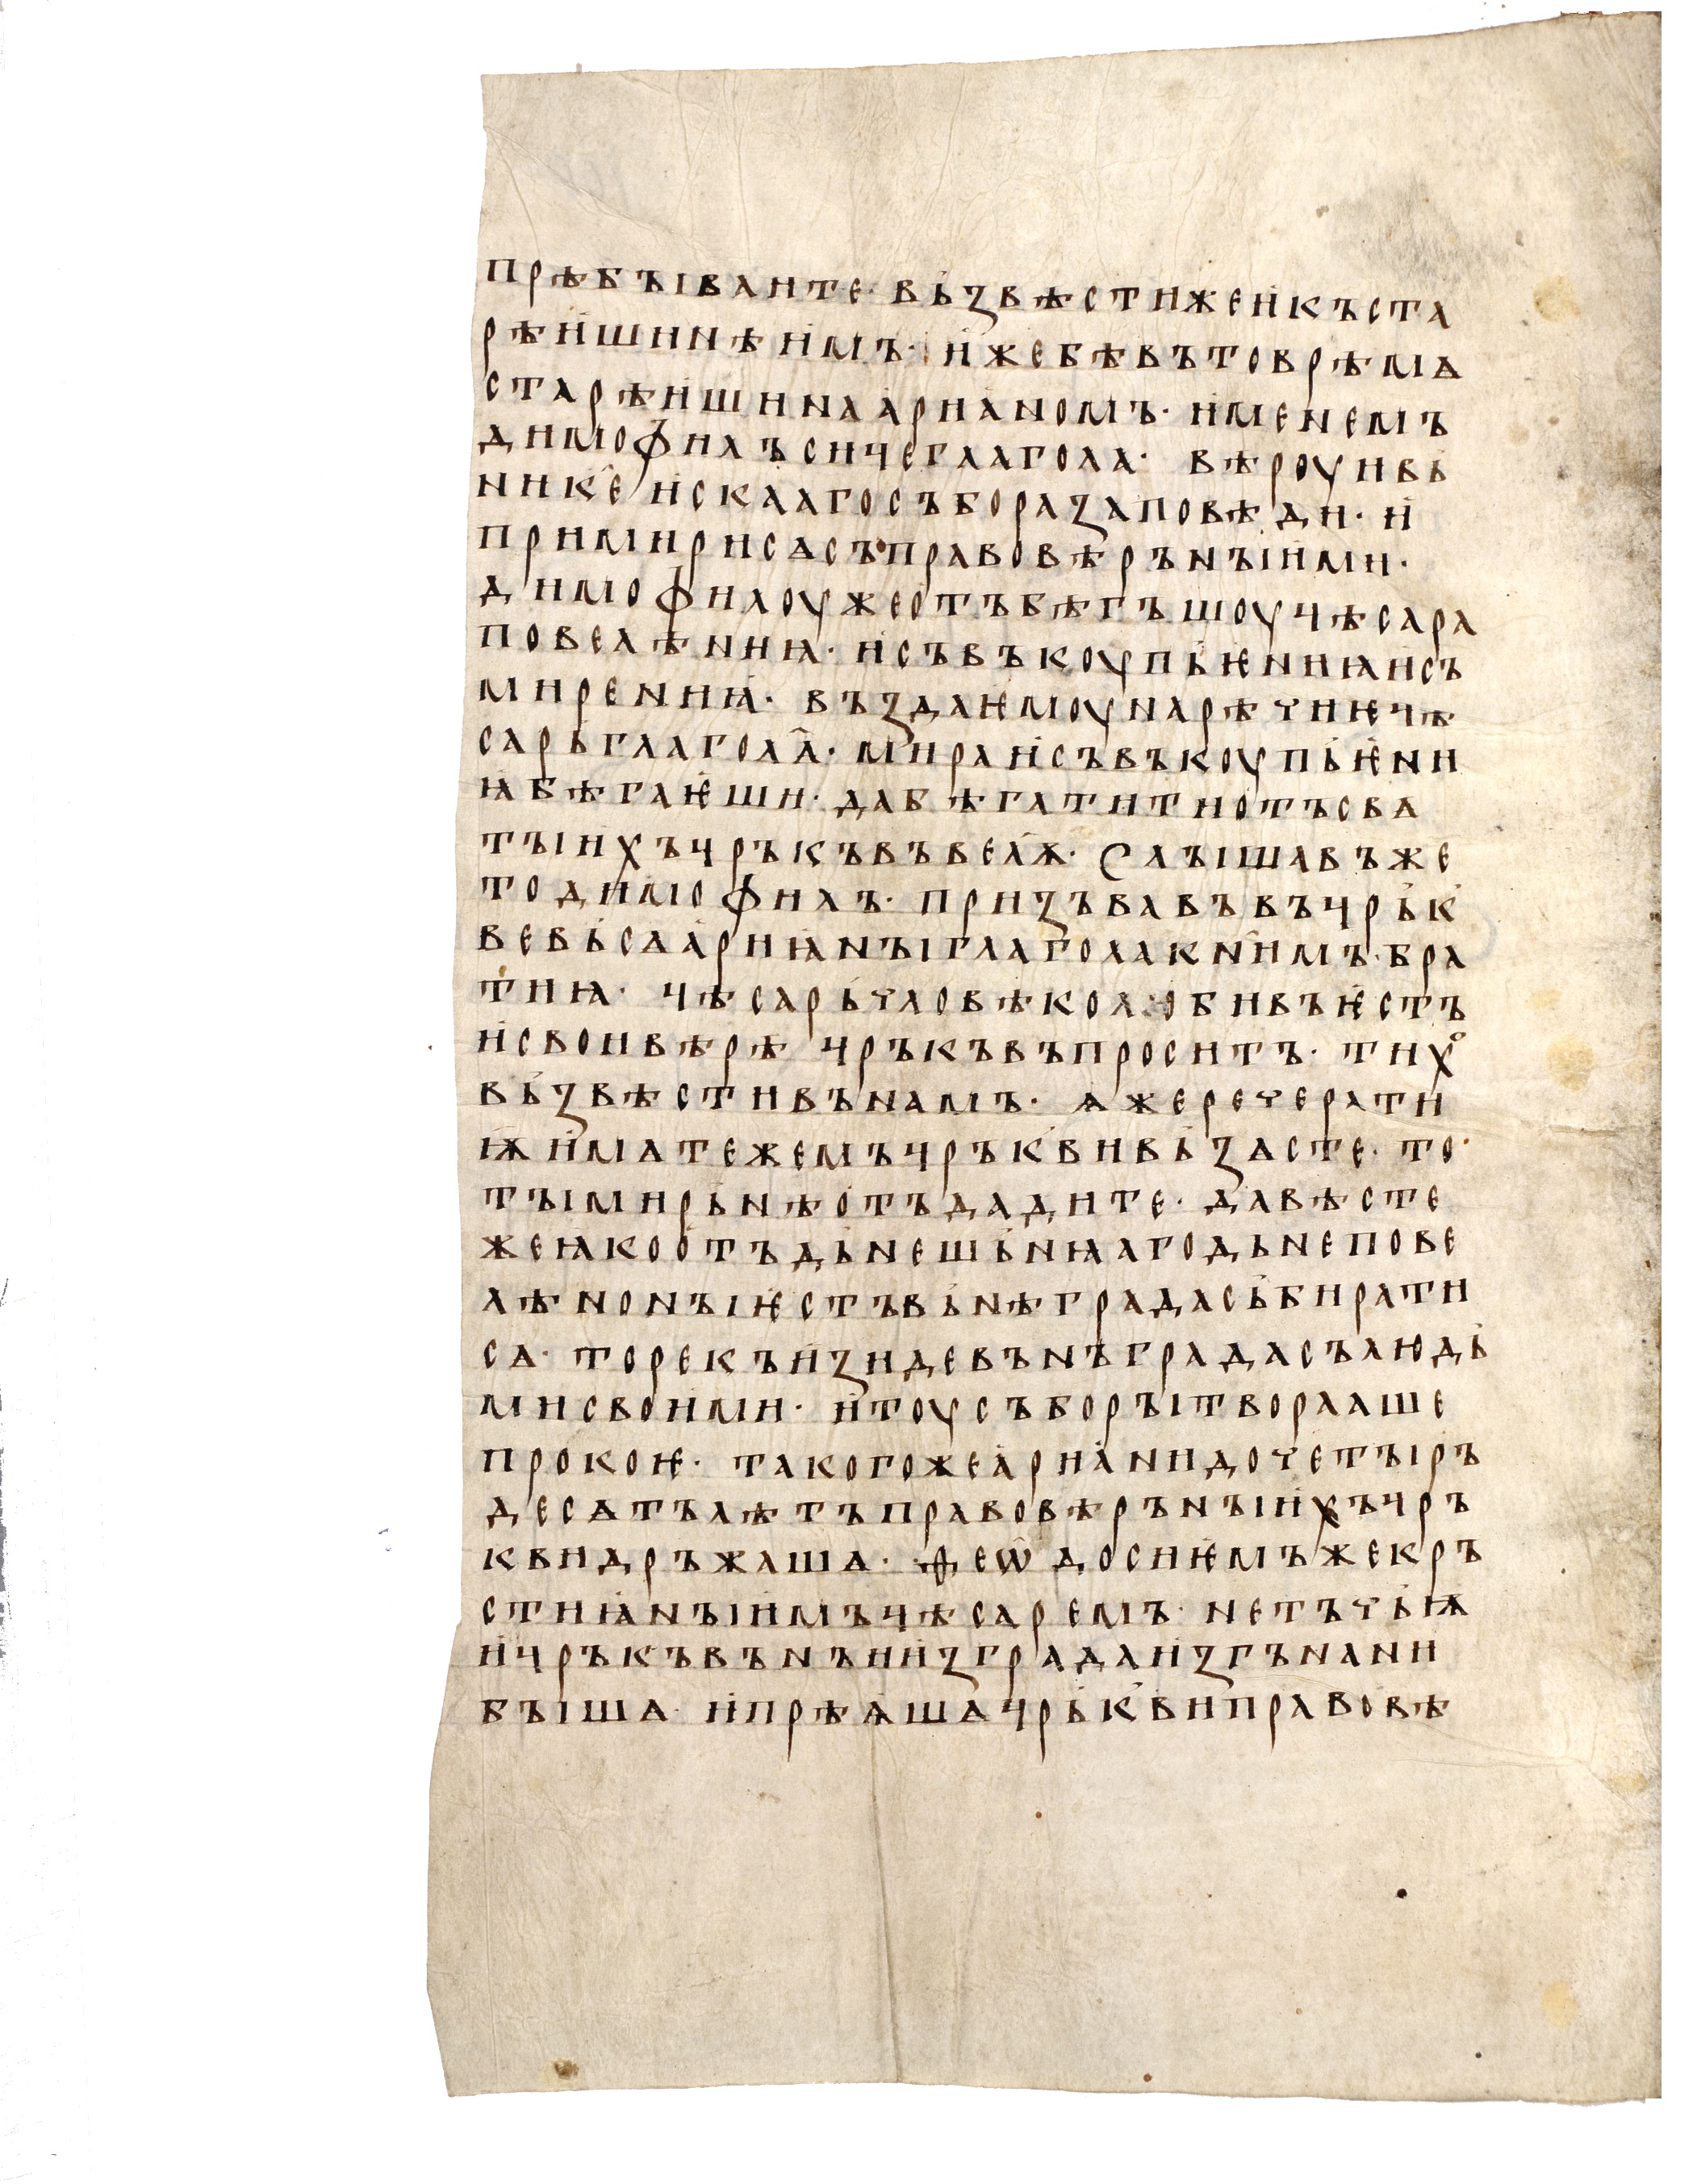 прѣбꙑваите· вьзвѣстижеикъста
рѣишинѣимъ· ижебѣвътоврѣмѧ
старѣишинаариꙗномъ· именемъ
димофилъсичеглагола· вѣроуивь
никеискаагосъбораꙁаповѣди· и
примирисѧсъправовѣрънꙑими·
димофилоужеотъбѣгъшоучѣсарꙗ
повелѣниꙗ· исъвъкоупьѥниꙗисъ
мирениꙗ· въꙁдаѥмоунарѣчиѥцѣ
сарьглаголѧ· мираисъвъкоупьѥни
ꙗбѣгаѥши· дабѣгатитиотъсвѧ
тꙑихъцръкъвъвелѭ· Слꙑшавъже
тодимофилъ· приꙁъвавъвъцрьк
вевьсѧариꙗнꙑглаголакнимъ· бра
тиꙗ· цѣсарьчловѣколюбивъѥстъ
исвоивѣрѣцръкъвъпроситъ· тихо
вьꙁвѣстивънамъ· ѧжеречерати
ѭиматежемъцръквивьꙁѧсте· то·
тꙑмирьнѣотъдадите· давѣсте
жеꙗкоотъдьнешьнꙗагодьнепове
лѣнонꙑѥстъвьнѣградасьбирати
сѧ· торекъиꙁидевънѣградасълюдь
мисвоими· итоусъборꙑтворꙗаше
прокоѥ· такогожеариꙗнидочетꙑръ
десѧтълѣтъправовѣрънꙑихъцръ
квидръжашѧ· ѳеѡдосиѥмъжекръ
стиꙗнꙑимъцѣсаремъ· нетъчьѭ
ицръкъвънъииꙁградаиꙁгънани
бꙑшѧ· ипрѣѩшѧцрьквиправовѣ